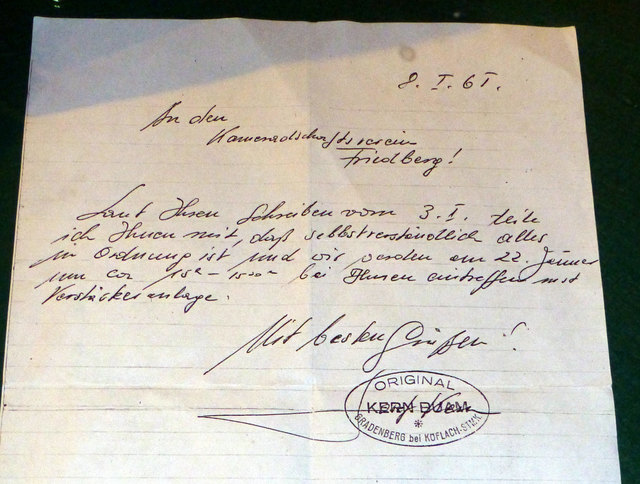 8. I. 61.
An den
Kameradschaftsverein
Friedberg!
Laut Ihren Schreiben vom 3. I. teile
ich Ihnen mit, daß selbstverständlich alles
in Ordnung ist, und wir werden am 22. Jänner
um ca 15 bei Ihnen eintreffen mit
Verstärkeranlage.
Mit besten Grüßen!
ORIGINAL
KERN BUAM
GRADENBERG bei KÖFLACH-STMK.